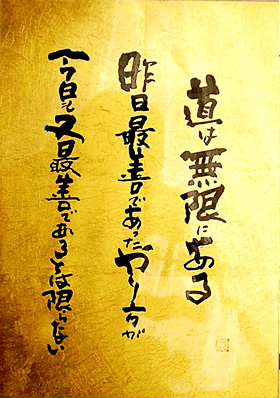 道は無限にある
昨日最善であったやり方が
今日も又最善であるとは限らない